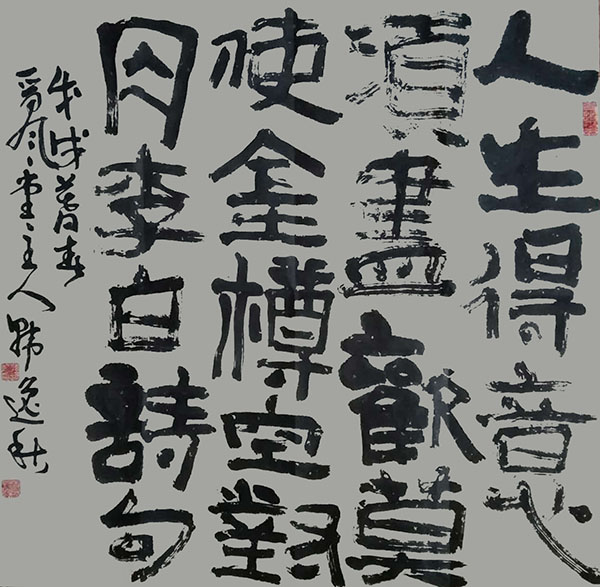 人生得意
須盡歡莫
使金樽空對
月李白詩句
戊戌暮春
風堂主人韩逸秋